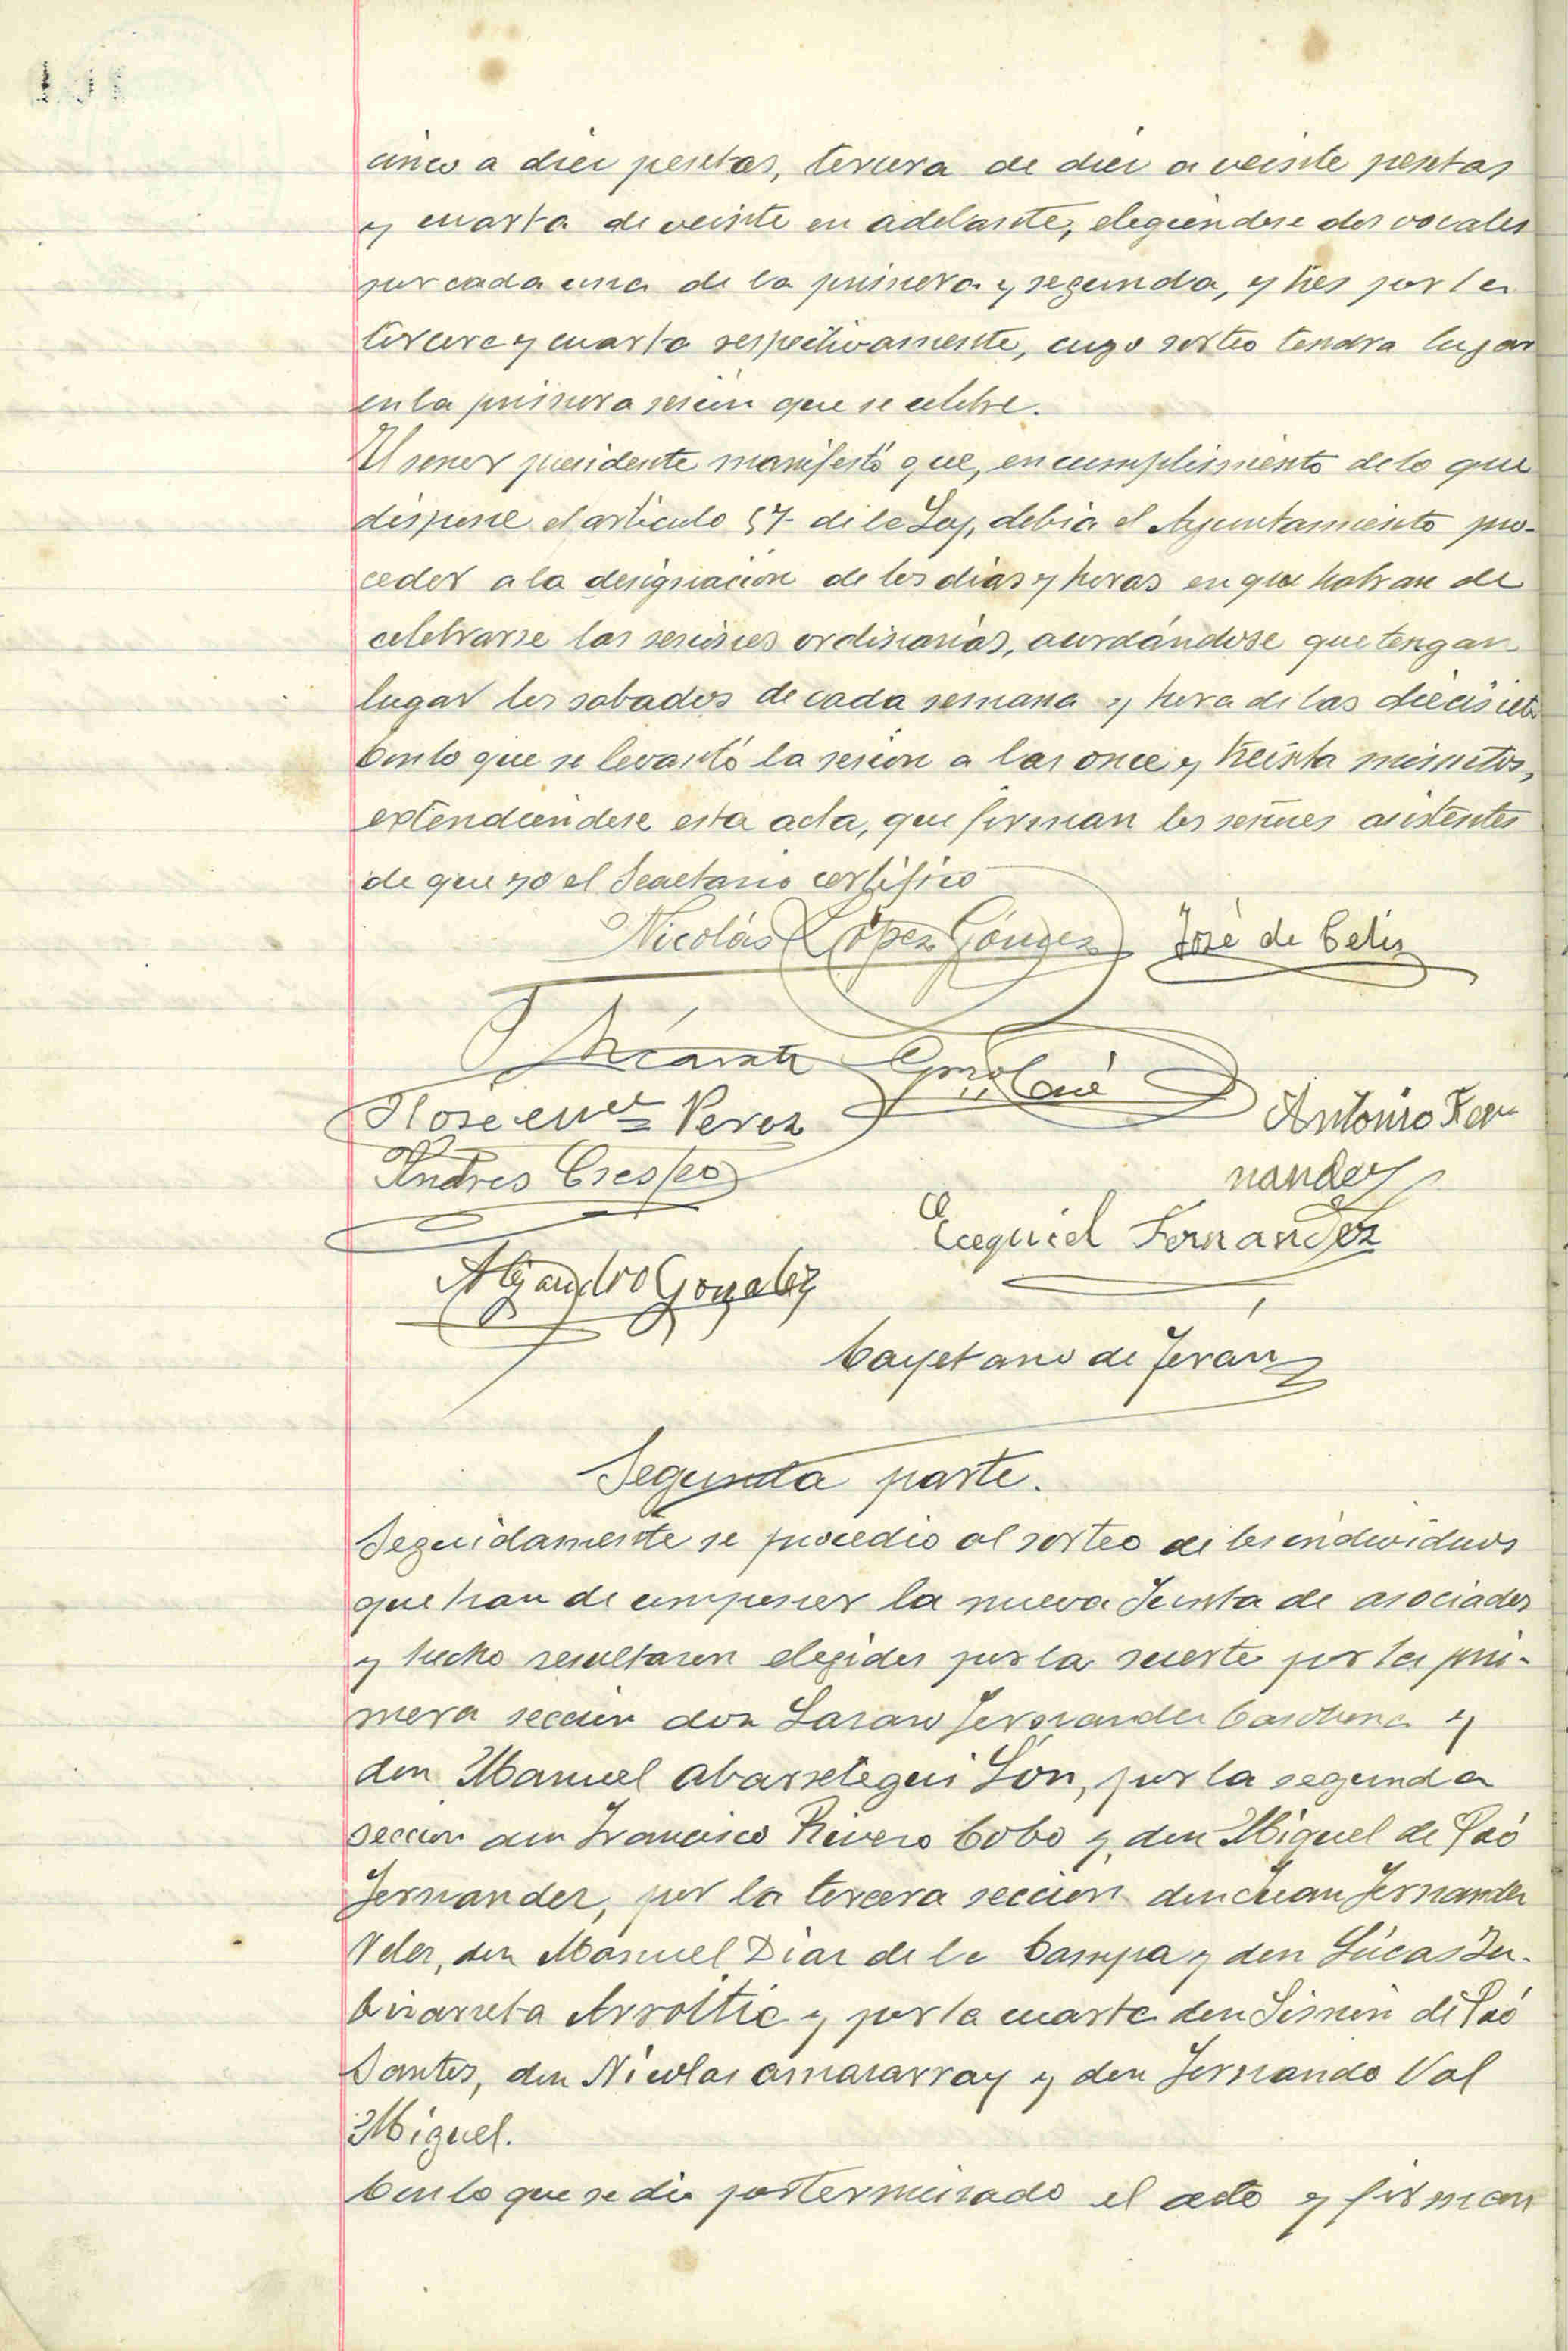 cinco a diez pesetas, tercera de diez a veinte pesetas
y cuarta de veinte en adelante, eligiendose dos vocales
por cada una de la primera y segunda, y tres por la
tercera y cuarta respectivamente, cuyo sorteo tendra lugar
en la primera sesion que se celebre.
El señor presidente manifestó que, en cumplimiento de lo que
dispone el articulo 57 de la Ley, debia el Ayuntamiento pro-
ceder a la designacion de los dias y horas en que habran de
celebrarse las sesiones ordinarias, acordándose que tengan
lugar los sabados de cada semana y hora de las diecisiete
Con lo que se levantó la sesion a las once y treinta minutos,
extendiendose esta acta, que firman los señores asistentes
de que yo el Secretario certifico
Nicolás López Gónzez José de Celis
Vicente
José Perez Antonio Fer
Andres Crespo nandez
Ecequiel Fernandez
Alejandro Gonzalez
Cayetano de Terán
Segunda parte.
Seguidamente se procedio al sorteo de los individuos
que han de componer la nueva Junta de asociados
y hecho resultaron elegidos por la suerte por la pri-
mera seccion don Lazaro Fernandez y
don Manuel Abarrategui Son, por la segunda
seccion don Francisco Rivero Cobo y don Miguel de Poó
Fernandez, por la tercera seccion don Juan Fernandez
Velez, don Manuel Diaz de la Campa y don Lúcas Zu-
bizarreta Arroitia y por la cuarta don Simon de Poó
Santos, don Nicolas Amararray y don Fernando Val
Miguel.
Con lo que se dio por terminado el acto y firman